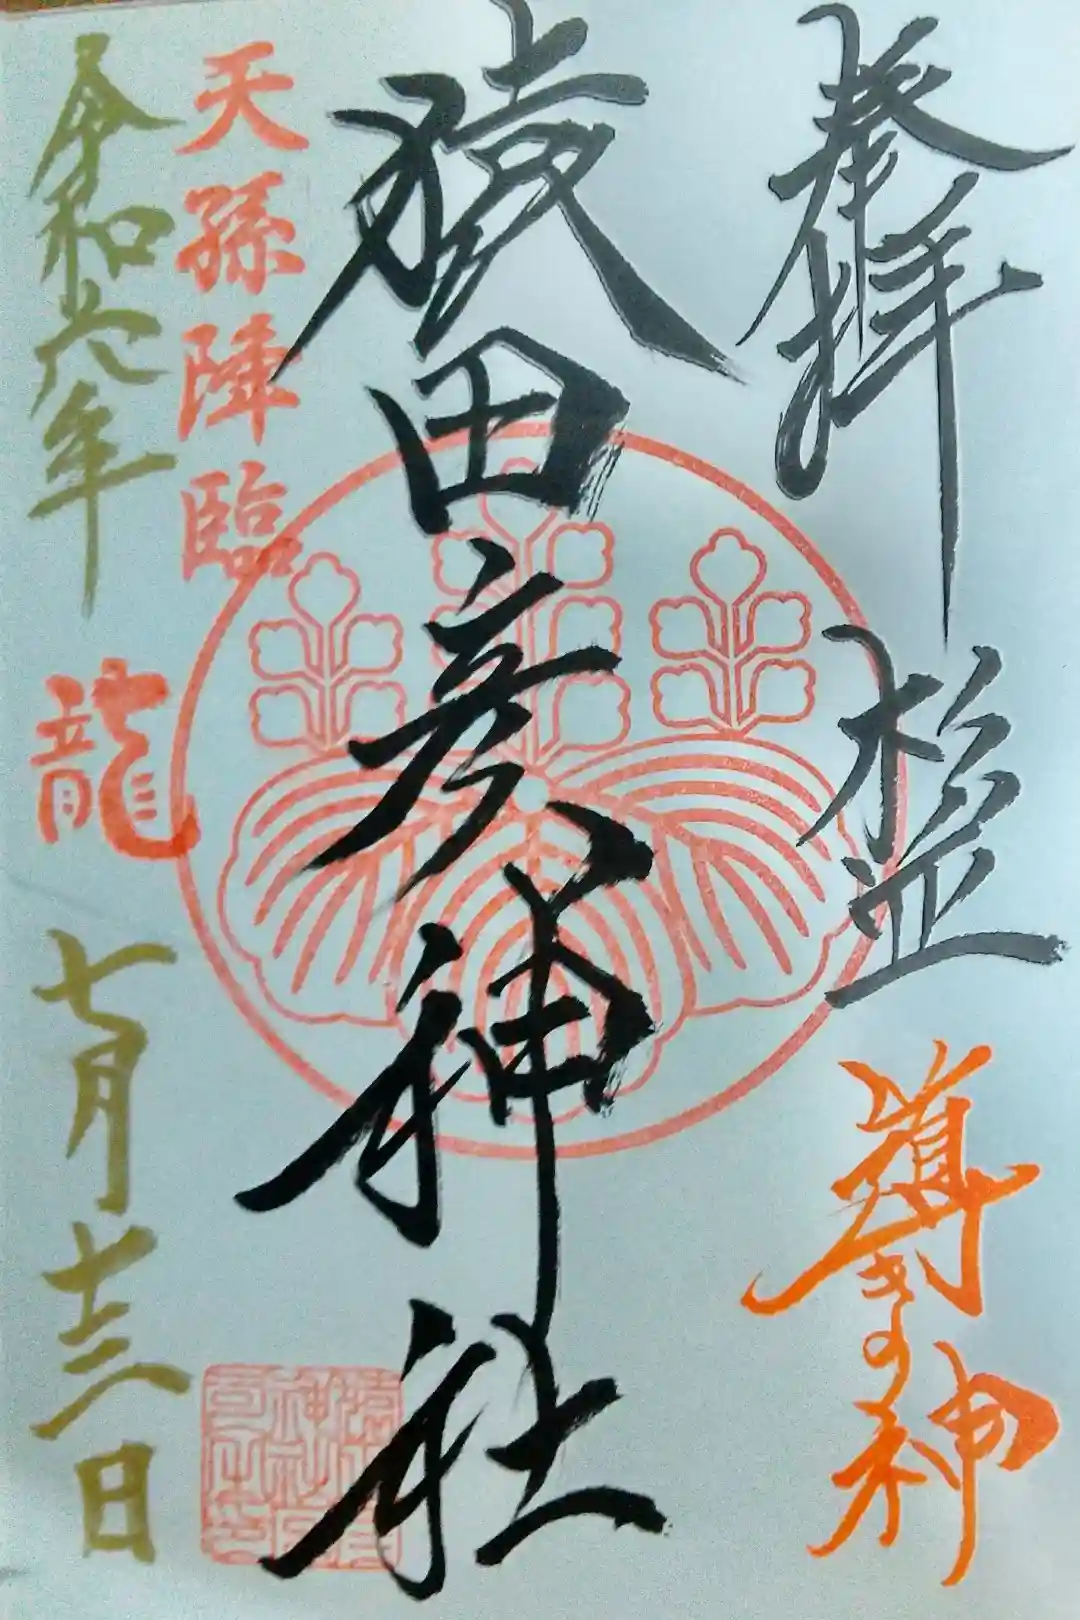 奉拝 杉並 導きの神
猿田彦神社
天孫降臨
令和六年 龍 七月十三日